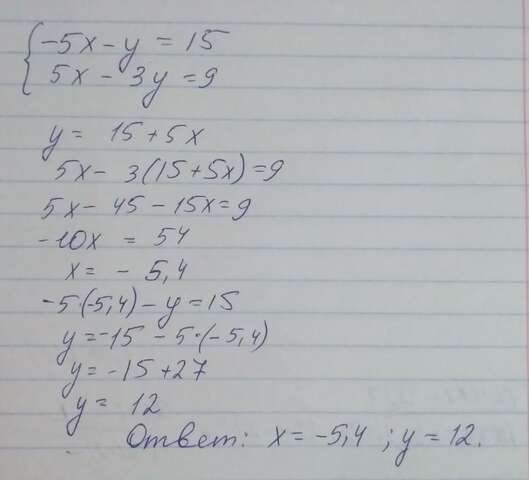 -5x - y = 15
5x - 3y = 9
y = 15 + 5x
5x - 3(15 + 5x) = 9
5x - 45 - 15x = 9
-10x = 54
x = - 5,4
-5·(-5,4) - y = 15
y = -15 - 5·(-5,4)
y = -15 + 27
y = 12
Ответ: x = -5,4 ; y = 12.